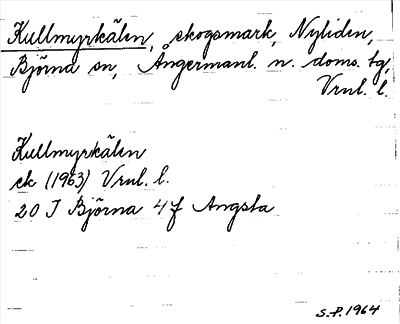 Kullmyrkälen, skogsmark, Nyliden,
Björna sn, Ångermanl. n. doms. tg,
Vrnl. l.
Kullmyrkälen
ek (1963) Vrnl. l.
20 J Björna 4 f Angsta
S.P. 1964